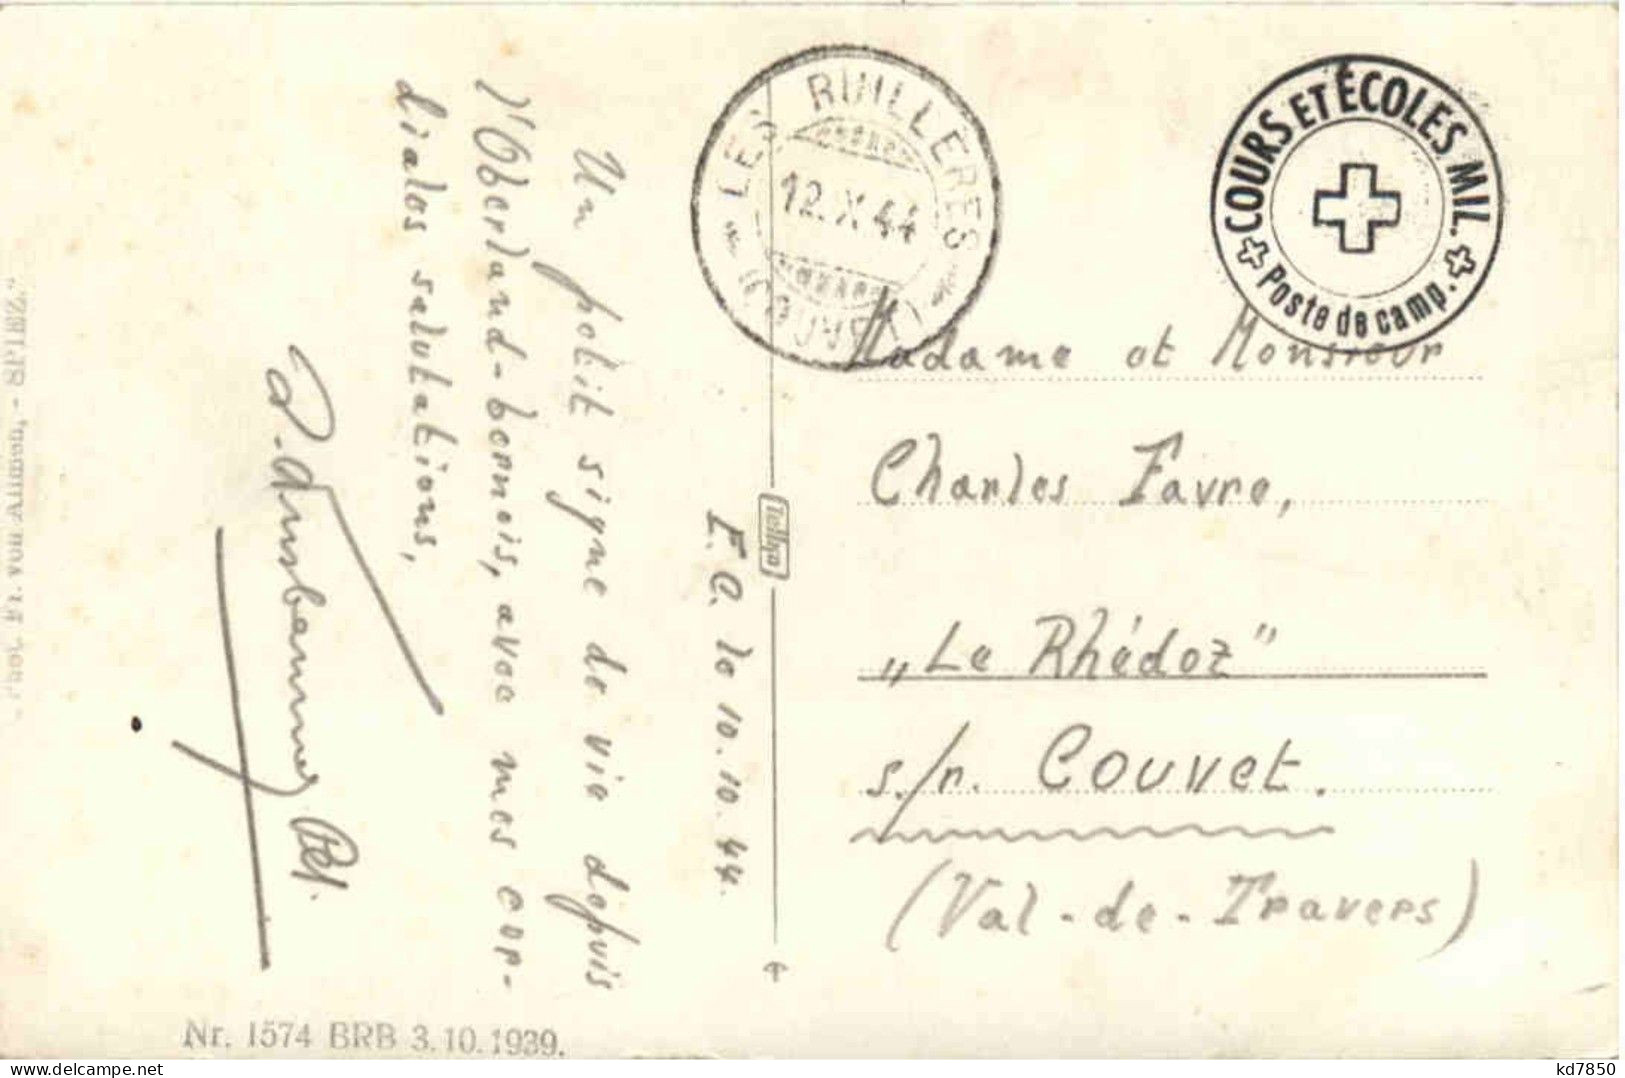 LES RUILLERES
12. X. 44
(COUVET)
COURS ET ÉCOLES MIL.
Poste de camp.
E. C. le 10. 10. 44.
Un petit signe de vie depuis
l'Oberland-bernois, avec mes cor-
diales salutations,
Madame et Monsieur
Charles Favre,
„Le Rhédoz"
s./r. Couvet.
(Val-de-Travers)
Phot. Fr. von Allmen, - SPIEZ."
Nr. 1574 BRB 3.10.1939.
kd7850